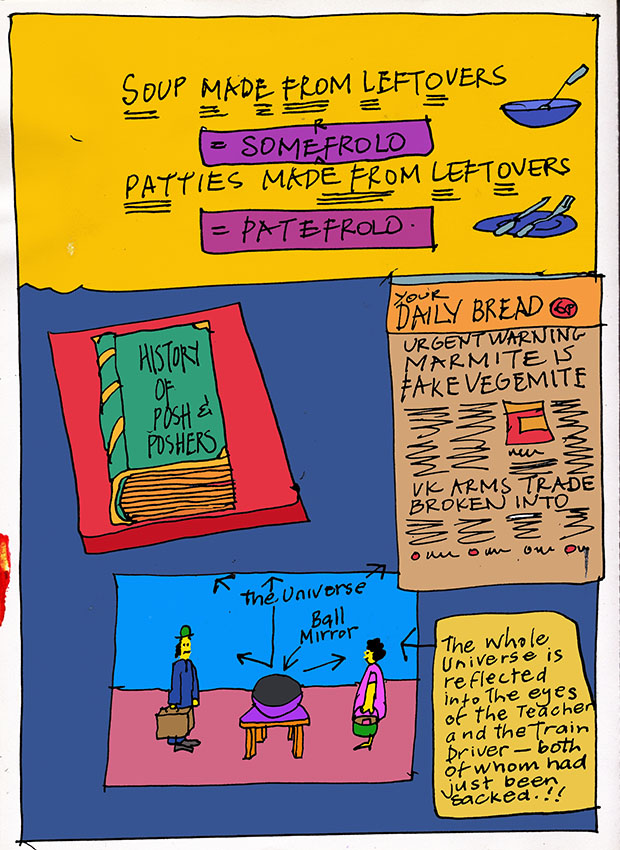 SOUP MADE FROM LEFTOVERS
R
= SOMEFROLO
PATTIES MADE FROM LEFTOVERS
= PATEFROLO.
HISTORY
OF
POSH &
POSHERS
YOUR
DAILY BREAD 6P
URGENT WARNING
MARMITE IS
FAKE VEGEMITE
UK ARMS TRADE
BROKEN INTO
The Universe
Ball
Mirror
The Whole
Universe is
reflected
into The eyes
of the Teacher
and the Train
Driver — both
of whom had
just been
sacked.!!